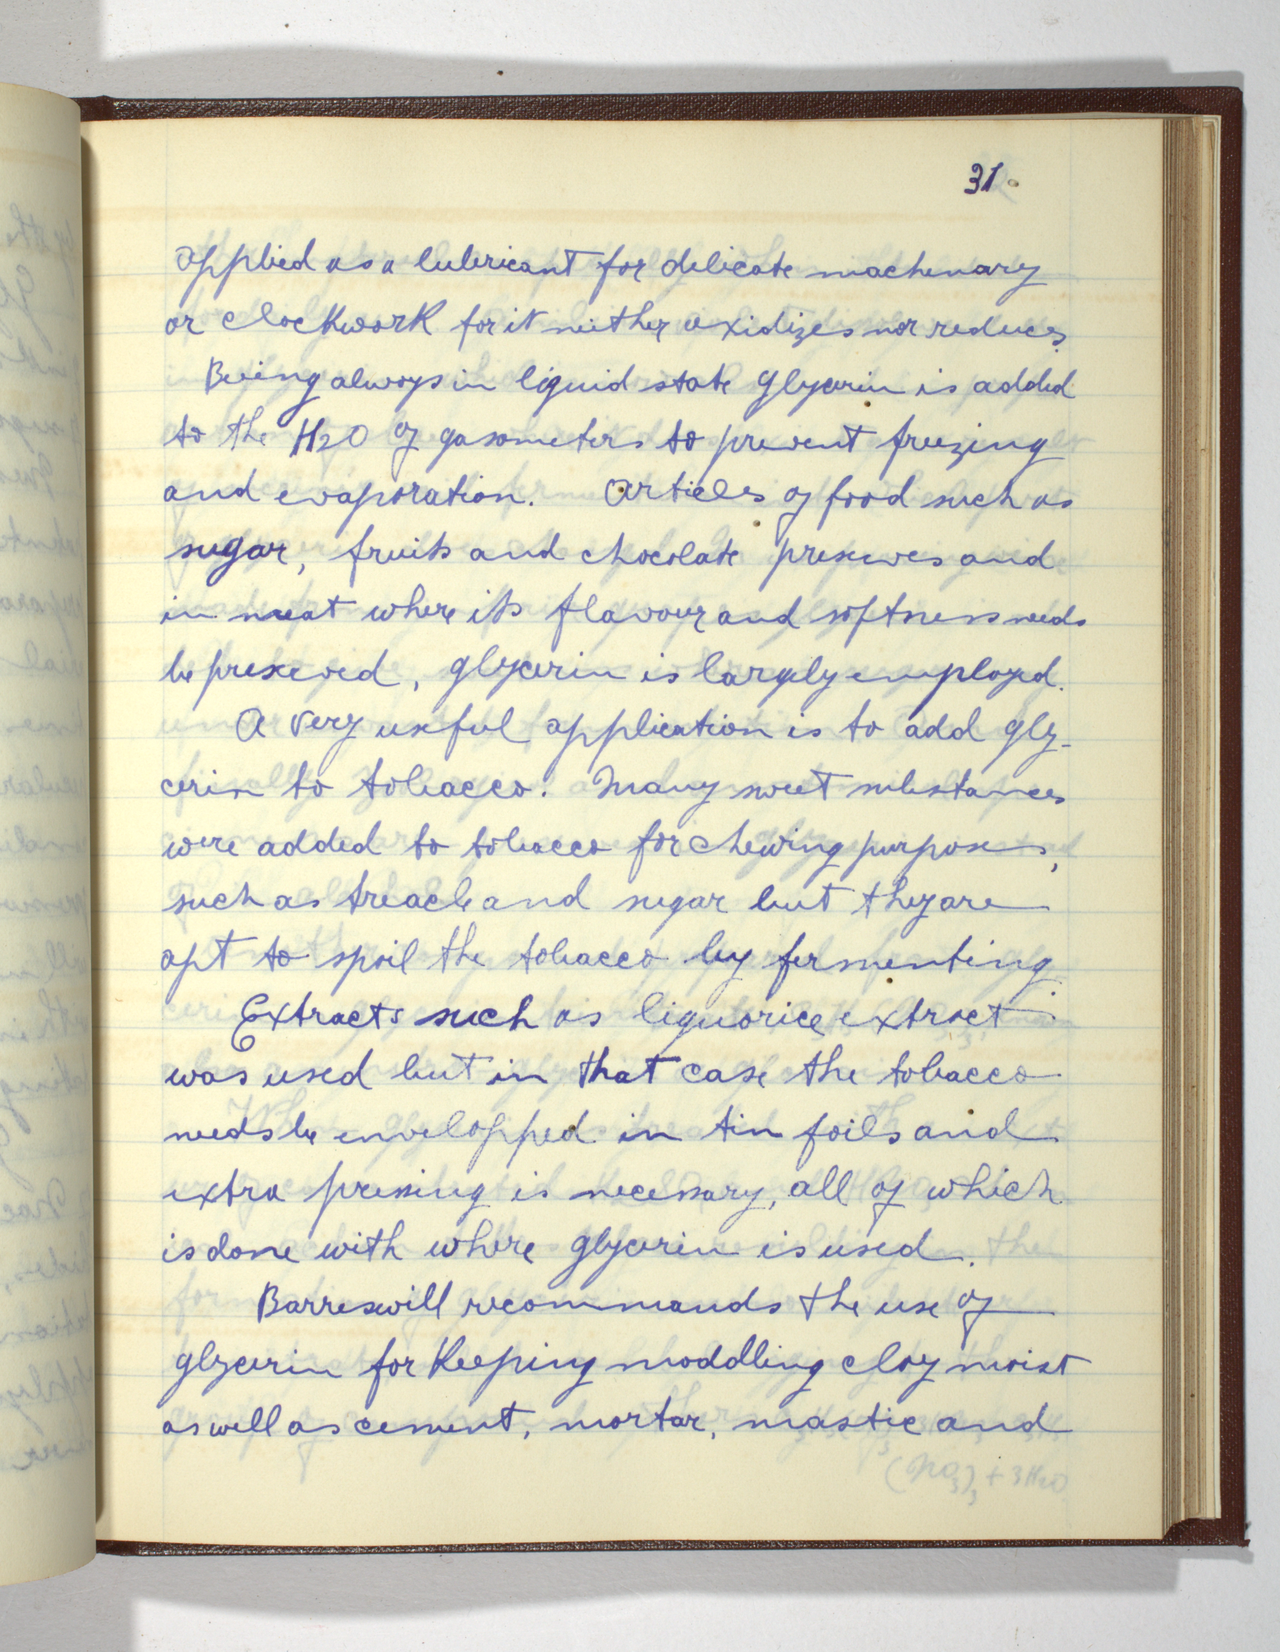 31.
applied as a lubricant for delicate machenary
or clockwork for it neither oxidizes nor reduces.
Being always in liquid state glycerin is added
to the H2O of gasometers to prevent freezing
and evaporation. Articles of food such as
sugar, fruits and chocolate preserves and
in meat where its flavour and softness needs
be preserved, glycerin is largely employed.
A very useful application is to add gly-
cerin to tobacco. Many sweet substances
were added to tobacco for chewing purposes,
such as treacle and sugar but they are
apt to spoil the tobacco by fermenting.
Extracts such as liquorice extract
was used but in that case the tobacco
needs be envelopped in tin foils and
extra pressing is necessary, all of which
is done with where glycerin is used.
Barreswill recommands the use of
glycerin for keeping moddling clay moist
as well as cement, mortar, mastic and
(NO3)3 + 3H2O